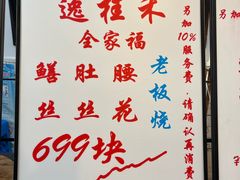 逸桂禾
全家福
鳝肚腰
丝丝花
699块
老板烧
另加10%服务费·请确认再消费